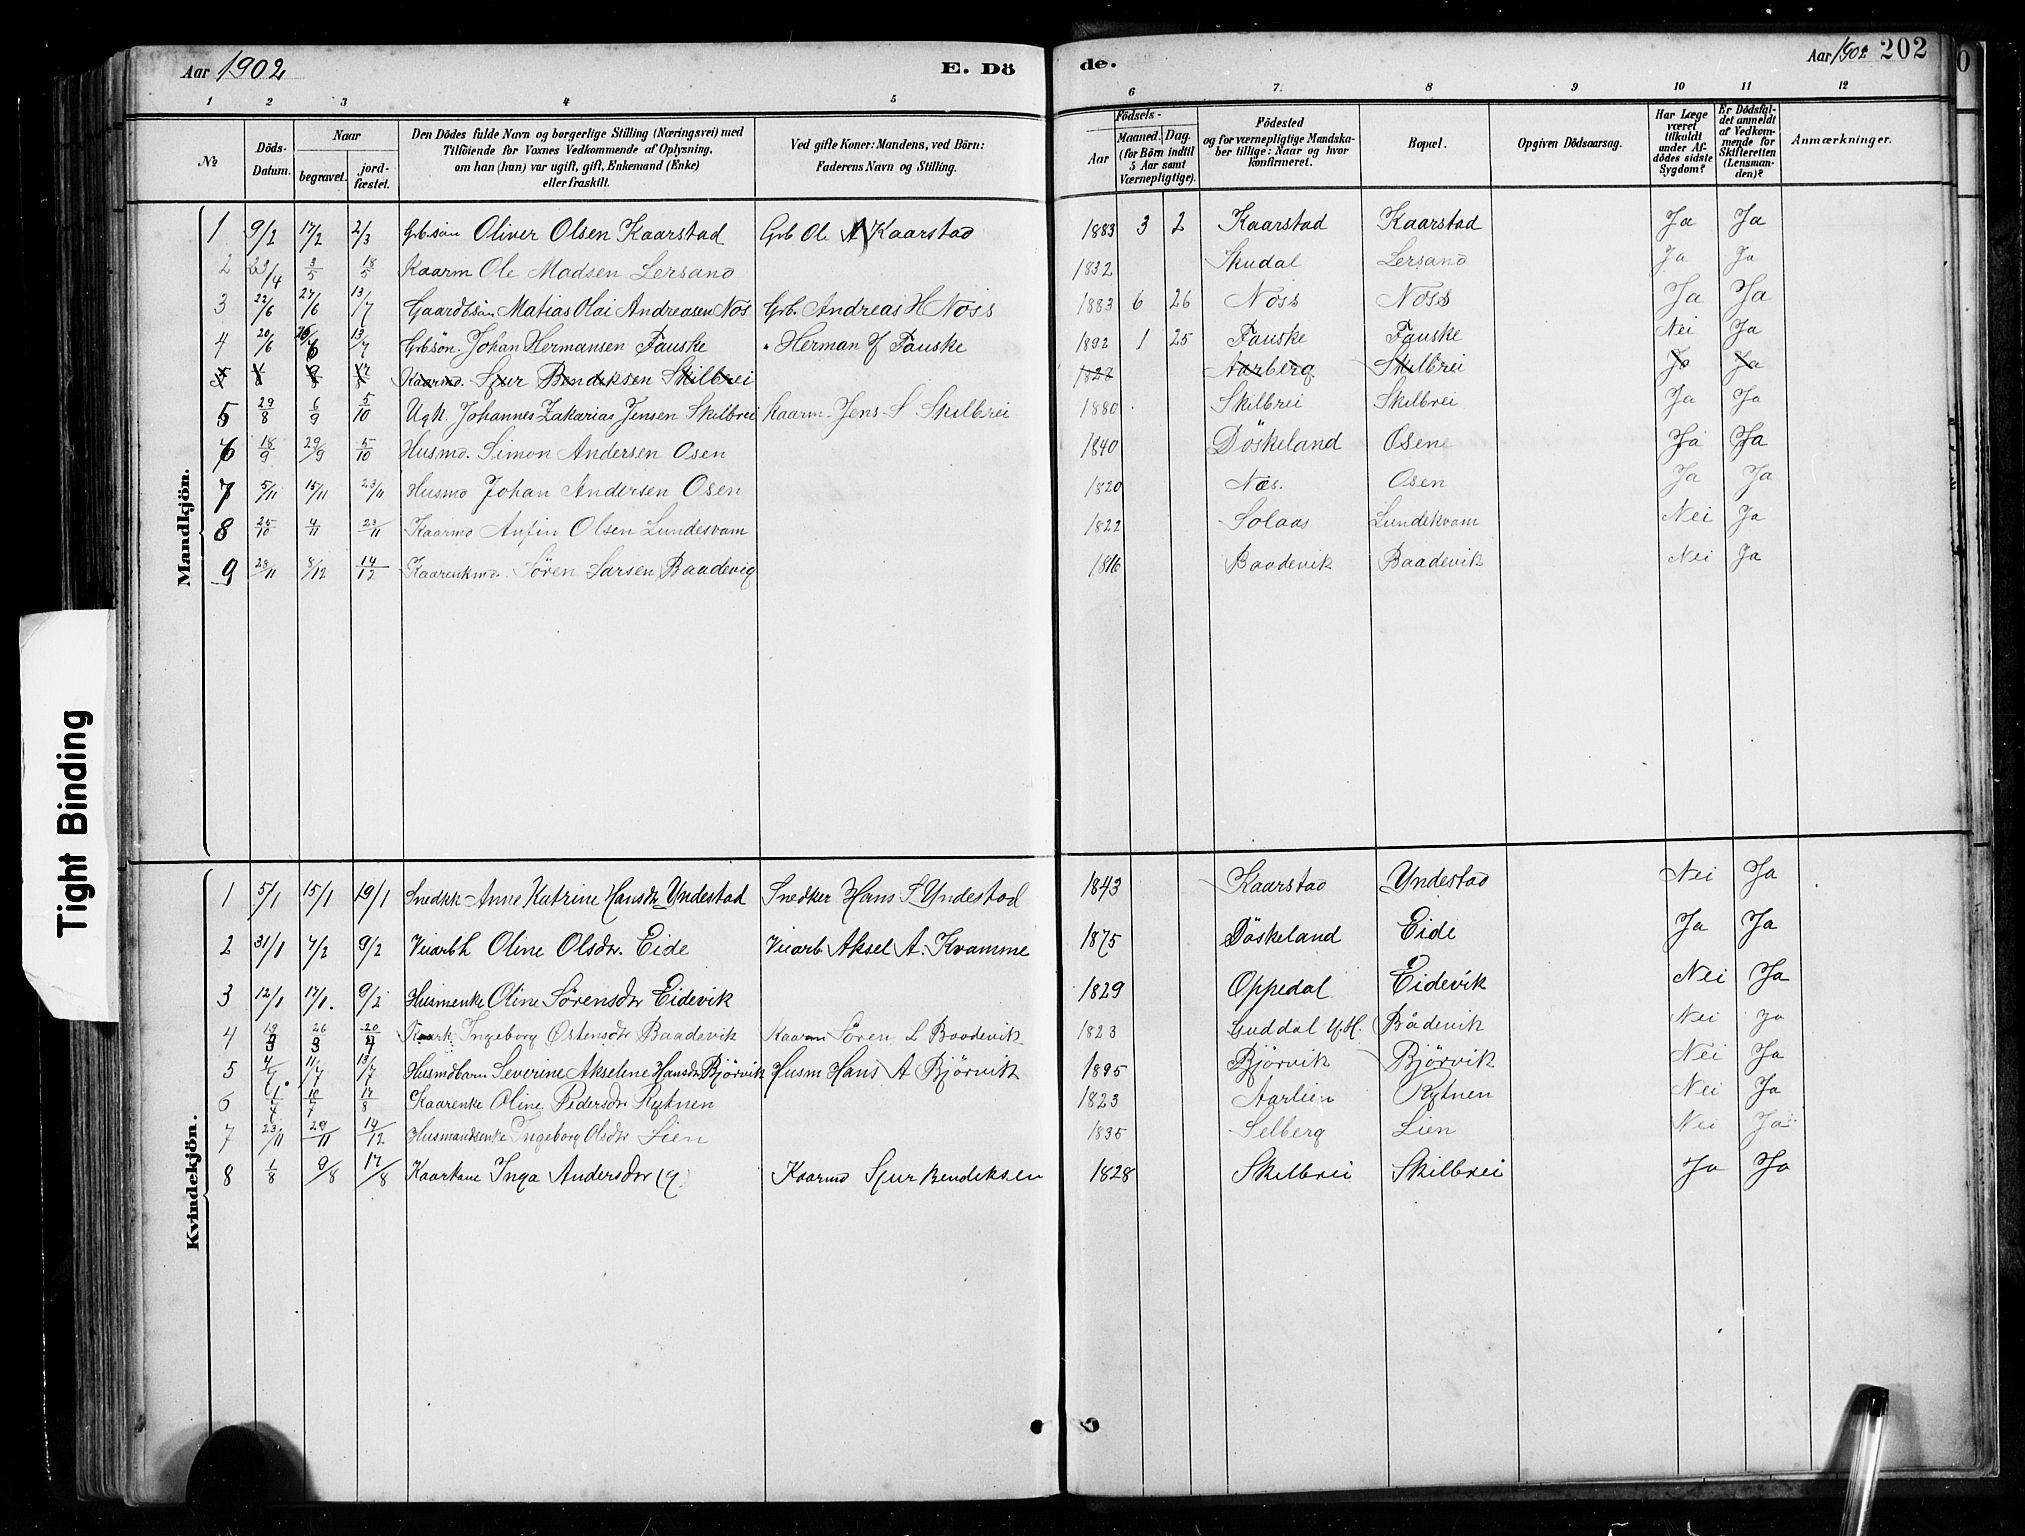 Aar 1902 E. Dö de. Aar 1902 202
1 2 3 4 5 6 7. 8 9 10 11 12
№ Döds-Datum. Naar begravet. jord-fæstet. Den Dödes fulde Navn og borgerlige Stilling (Næringsvei) med Tilföiende for Voxnes Vedkommende af Oplysning, om han (hun) var ugift, gift, Enkemand (Enke) eller fraskilt. Ved gifte Koner: Mandens, ved Börn: Faderens Navn og Stilling. Födsels- Aar Maaned. Dag. (for Börn indtil 5 Aar samt Værnepligtige). Födested og for værnepligtige Mandska-ber tillige: Naar og hvor konfirmeret. Bopæl. Opgiven Dödsaarsag. Har Læge været tilkaldt under Af-dödes sidste Sygdom? Er Dödsfal-det anmeldt af Vedkom-mende for Skifteretten (Lensman-den)? Anmærkninger.
Mandkjön.
1 9/2 17/2 2/3 Grbsön Oliver Olsen Kaarstad Grb Ole A Kaarstad 1883 3 2 Kaarstad Kaarstad Ja Ja
2 23/4 3/5 18/5 Kaarm Ole Madsen Lersand 1832 Skudal Lersand Ja Ja
3 22/6 27/6 13/7 Gaardbsön Matias Olai Andreasen Nøs Grb. Andreas H Nøss 1883 6 26 Nøss Nøss Ja Ja
4 20/6 26/6 13/7 Grbsön. Johan Hermansen Fauske " Herman J Fauske 1892 1 25 Fauske Fauske Nei Ja
5 Kaarmd. Sjur Bendiksen Skilbrei 1828 Aarberg Skilbrei Ja Ja
5 29/8 6/9 5/10 Ugk. Johannes Zakarias Jensen Skilbrei Kaarm. Jens S. Skilbrei 1880 Skilbrei Skilbrei Ja Ja
6 18/9 29/9 5/10 Husmd. Simon Andersen Osen 1840 Döskeland Osene Ja Ja
7 5/11 15/11 23/11 Husmd Johan Andersen Osen 1820 Næs. Osen Ja Ja
8 25/10 4/11 23/11 Kaarmd Anfin Olsen Lundesvam 1822 Solaas Lundekvam Nei Ja
9 28/11 8/12 14/12 Kaarenkmd. Sören Larsen Baadevig 1816 Baadevik Baadevik Nei Ja
Kvindekjön.
1 5/1 15/1 19/1 Snedkk Anne Katrine Hansdr Yndestad Snedker Hans S Yndestad 1843 Kaarstad Yndestad Nei Ja
2 31/1 7/2 9/2 Veiarbk Oline Olsdr. Eide Veiarb Aksel A. Kvamme 1875 Döskeland Eide Ja Ja
3 12/1 17/1. 9/2 Husmenke Oline Sørensdr Eidevik 1829 Oppedal Eidevik Nei Ja
4 19/3 26/3 20/4 Kaark. Ingeborg Østensdr Baadevik Kaarm Sören L Baadevik 1823 Guddal Y.H. Bådevik Nei Ja
5 4/7 11/7 13/7 Husmdbarn Severine Akseline Hansdr Bjørvik Husm Hans A Bjørvik 1895 Bjørvik Bjørvik Nei Ja
6 10/7 17/8 Kaarenke Oline Pedersdr Rytnen 1823 Aarlien Rytnen Nei Ja
7 23/11 29/11 14/12 Husmandsenke Ingeborg Olsdr Lien 1835 Selberg Lien Nei Ja
8 1/8 9/8 17/8 Kaarkone Inga Andersdr (g) Kaarmd Sjur Bendiksen 1828 Skilbrei Skilbrei Ja Ja
Tight Binding